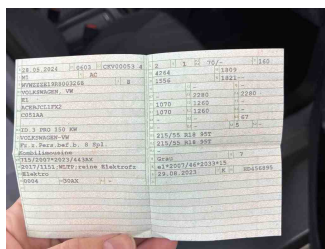 28.05.2024 0603 CKV00053 4
M1 AC
VOLKSWAGEN, VW
E1
ACERJC11FX2
CUS1AA
ID.3 PRO 150 KW
VOLKSWAGEN-VW
Fz z.Pers.bef.b. 8 Spl.
Kombilimousine
715/2007*2023/443AX
2017/1151;WLTP;reine Elektrofz
Elektro
0004 30AX -
2 1 70/- 160
4264 1809
1556 1821 -
- -
- 2280 2280 -
- - -
1070 1260 -
1070 1260 -
- - 67
- 5 -
215/55 R18 95T
215/55 R18 95T
-
Grau 7
e1*2007/46*2033*15
29.08.2023 K